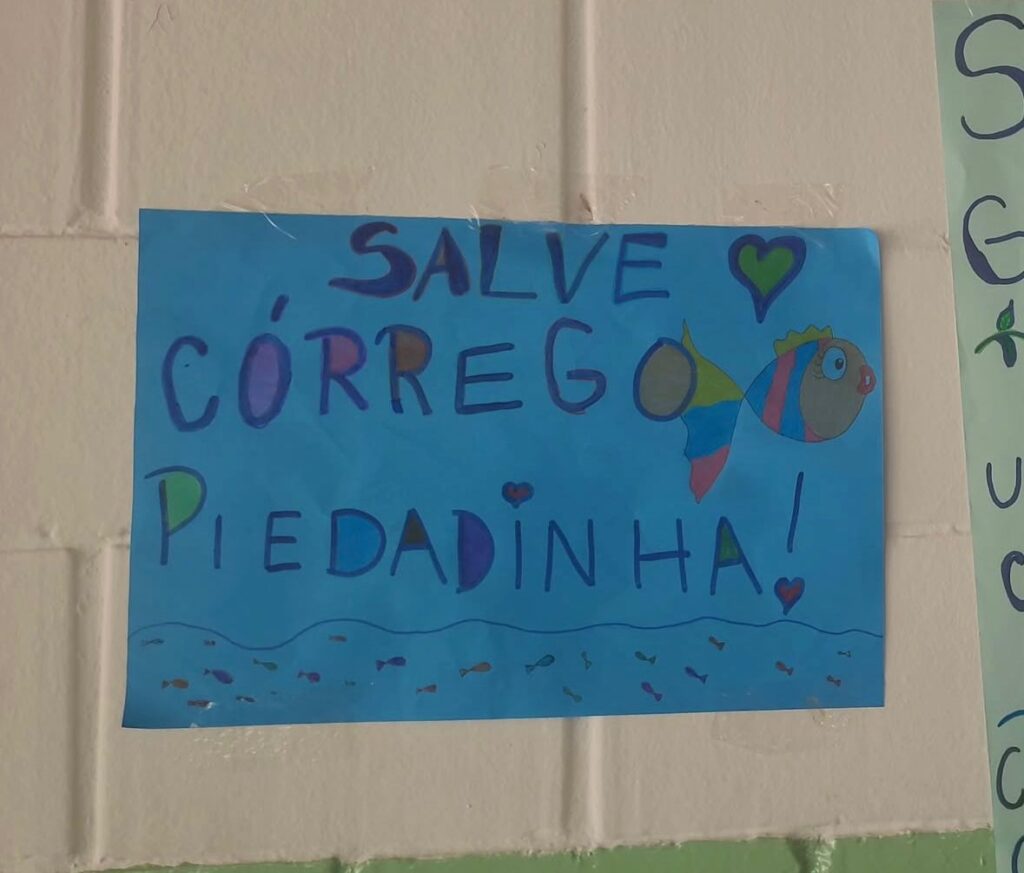 SALVE
CÓRREGO
PIEDADINHA!